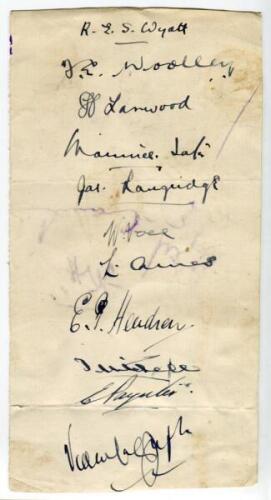 R. E. S. Wyatt
F. E. Woolley
H Larwood
Maurice Tate
Jas. Langridge
W. Voce
L. Ames
E. P. Hendren
E Paynter